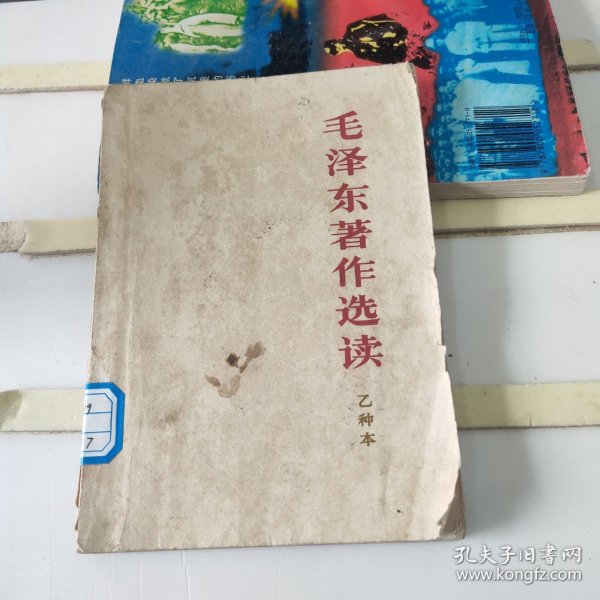 毛泽东著作选读
乙种本
9
7
孔夫子旧书网
www.kongfz.com